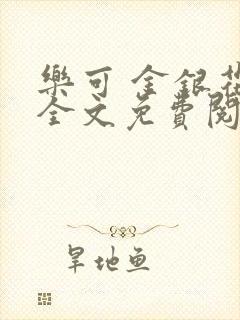 樂可 金銀花
全文免費閱
旱地鱼